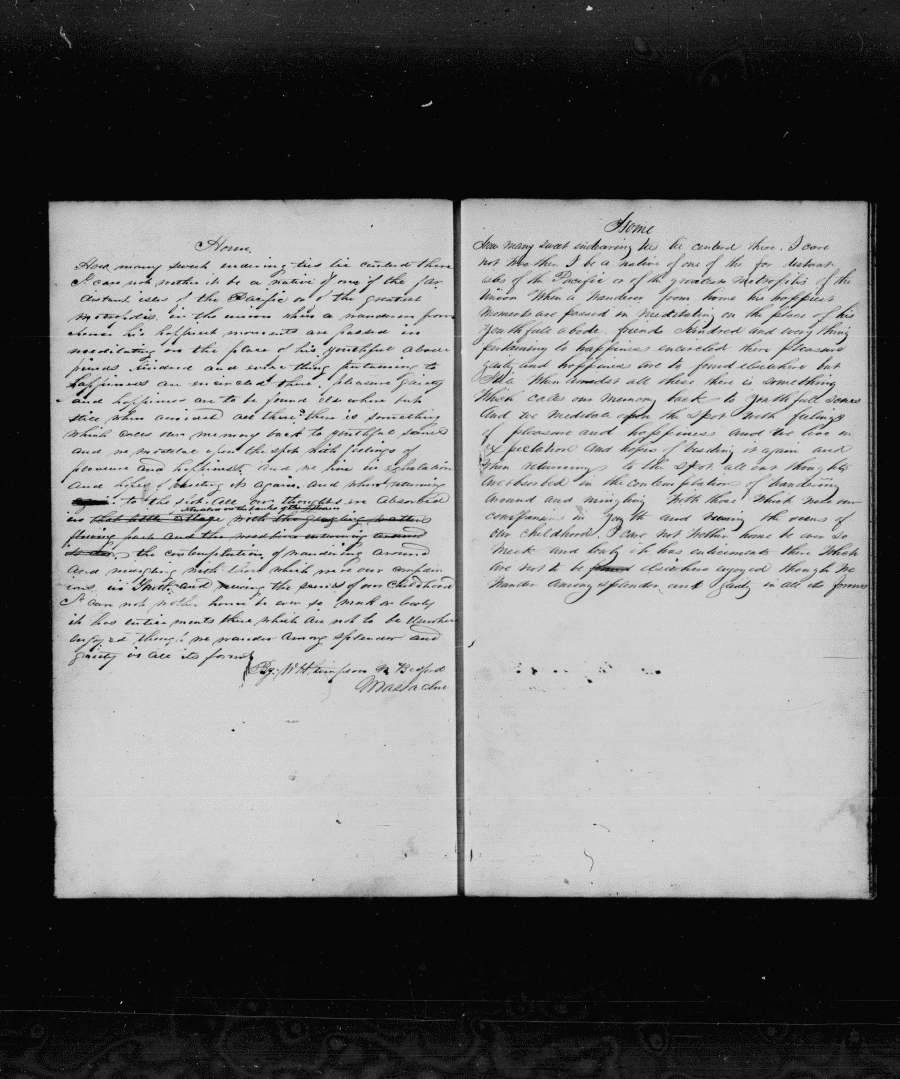 Home
How many sweet endering ties lie centerd there
I care not wether it be a native of one of the far
distant isles of the Pacific or of the greatest
metropolis in the union when a wanderer from
home his happiest moments are passed in
meditating on the place of his youthful abode
friends, kindred and every thing pertaining to
happiness are encircled there, pleasure gaiety
and happiness are to be found else where but
still when amidst all these there is something
which calls our memory back to youthful scenes
and we meditate upon the spot with feelings of
pleasure and happiness, and we live in expectation
and hopes of visiting it again. and when returning
to the spot all our thoughts are absorbed
situated on the banks of the
in that little village with the
flowing back and the
the contemplation of wandering around
and mingling with those which were our compan
ions in Youth and viewing the scenes of our childhood
I care not wether home be ever so meek or lowly
it has enticements there which are not to be elsewhere
enjoyed though we wander among splendor and
gaiety in all its forms
By W H Simpson N. Bedford
Massachu
Home
How many sweet endearing ties lie centerd there. I care
not wether I be a native of one of the far distant
isles of the Pacific or of the greatest Metropolis of the
Union When a Wanderer from home his happiest
Moments are passed in Meditating on the place of his
Youthfull abode friends Kindred and every thing
pertaining to happiness encircled there pleasure
gaiety and happiness are to found elsewhere but
Still When amidst all these there is something
Which calls our Memory back to Youthfull scenes
And we Meditate upon the Spot With feelings
of pleasure and happiness and we live in
expectation and hopes of visiting it again and
When returning to the Spot all our thoughts
are absorbed in the contemplation of Wandering
around and mingling With those Which were our
companions in youth and viewing the scenes of
our childhood. I care not Wether home be ever so
Meek and lowly it has enticements there Which
are not to be found elsewhere enjoyed though We
Wander Among splendor and gaiety in all its forms